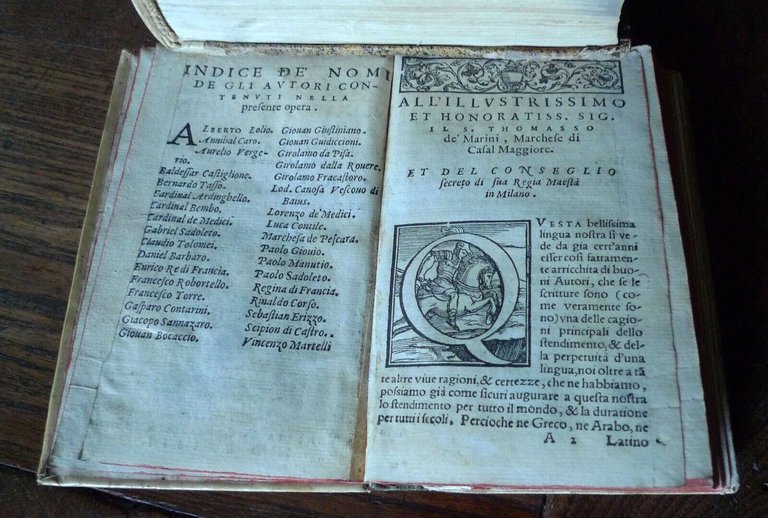 INDICE DE' NOMI
DE GLI AVTORI CON-
TENVTI NELLA
presente opera.
ALBERTO Lolio.
Annibal Caro.
Aurelio Verge-
rio.
Baldessar Castiglione.
Bernardo Tasso.
Cardinal Ardinghello.
Cardinal Bembo.
Cardinal de Medici.
Gabriel Sadoleto.
Claudio Tolomei.
Daniel Barbaro.
Enrico Re di Francia.
Francesco Robortello.
Francesco Torre.
Gasparo Contarini.
Giacopo Sannazaro.
Giouan Bocaccio.
Giouan Giustiniano.
Giouan Guidiccioni.
Girolamo da Pisa.
Girolamo dalla Rouere.
Girolamo Fracastoro.
Lod. Canosa Vescouo di
Baius.
Lorenzo de' Medici.
Luca Contile.
Marchesa de Pescara.
Paolo Giouio.
Paolo Manutio.
Paolo Sadoleto.
Regina di Francia.
Rinaldo Corso.
Sebastian Erizzo.
Scipion di Castro.
Vincenzo Martelli
ALL'ILLVSTRISSIMO
ET HONORATISS. SIG.
IL S. THOMASSO
de' Marini, Marchese di
Casal Maggiore.
ET DEL CONSEGLIO
secreto di sua Regia Maestà
in Milano.
QVESTA bellissima
lingua nostra si ve
de da gia cert'anni
esser così fattamente
arricchita di buo-
ni Autori, che se le
scritture sono (co
me veramente so-
no) vna delle cagio
ni principali dello
stendimento, & del-
la perpetuità d'una
lingua, noi oltre a tã
te altre viue ragioni, & certezze, che ne habbiamo,
possiamo già come sicuri augurare a questa nostra
lo stendimento per tutto il mondo, & la duratione
per tutti i secoli. Percioche ne Greco, ne Arabo, ne
A 2 Latino